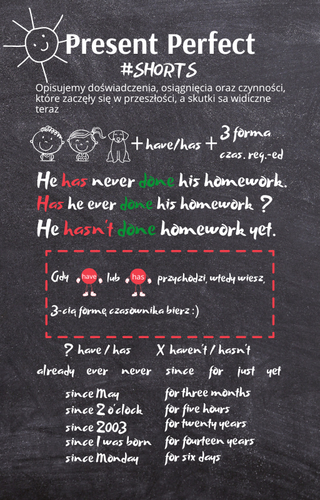 Present Perfect
#SHORTS
Opisujemy doświadczenia, osiągnięcia oraz czynności,
które zaczęły się w przeszłości, a skutki sa widiczne
teraz
+ have/has + 3 forma
czas. reg.-ed
He has never done his homework.
Has he ever done his homework ?
He hasn't done homework yet.
Gdy have lub has przychodzi, wtedy wiesz,
3-cią formę czasownika bierz :)
? have / has X haven't / hasn't
already ever never since for just yet
since May for three months
since 2 o'clock for five hours
since 2003 for twenty years
since I was born for fourteen years
since Monday for six days